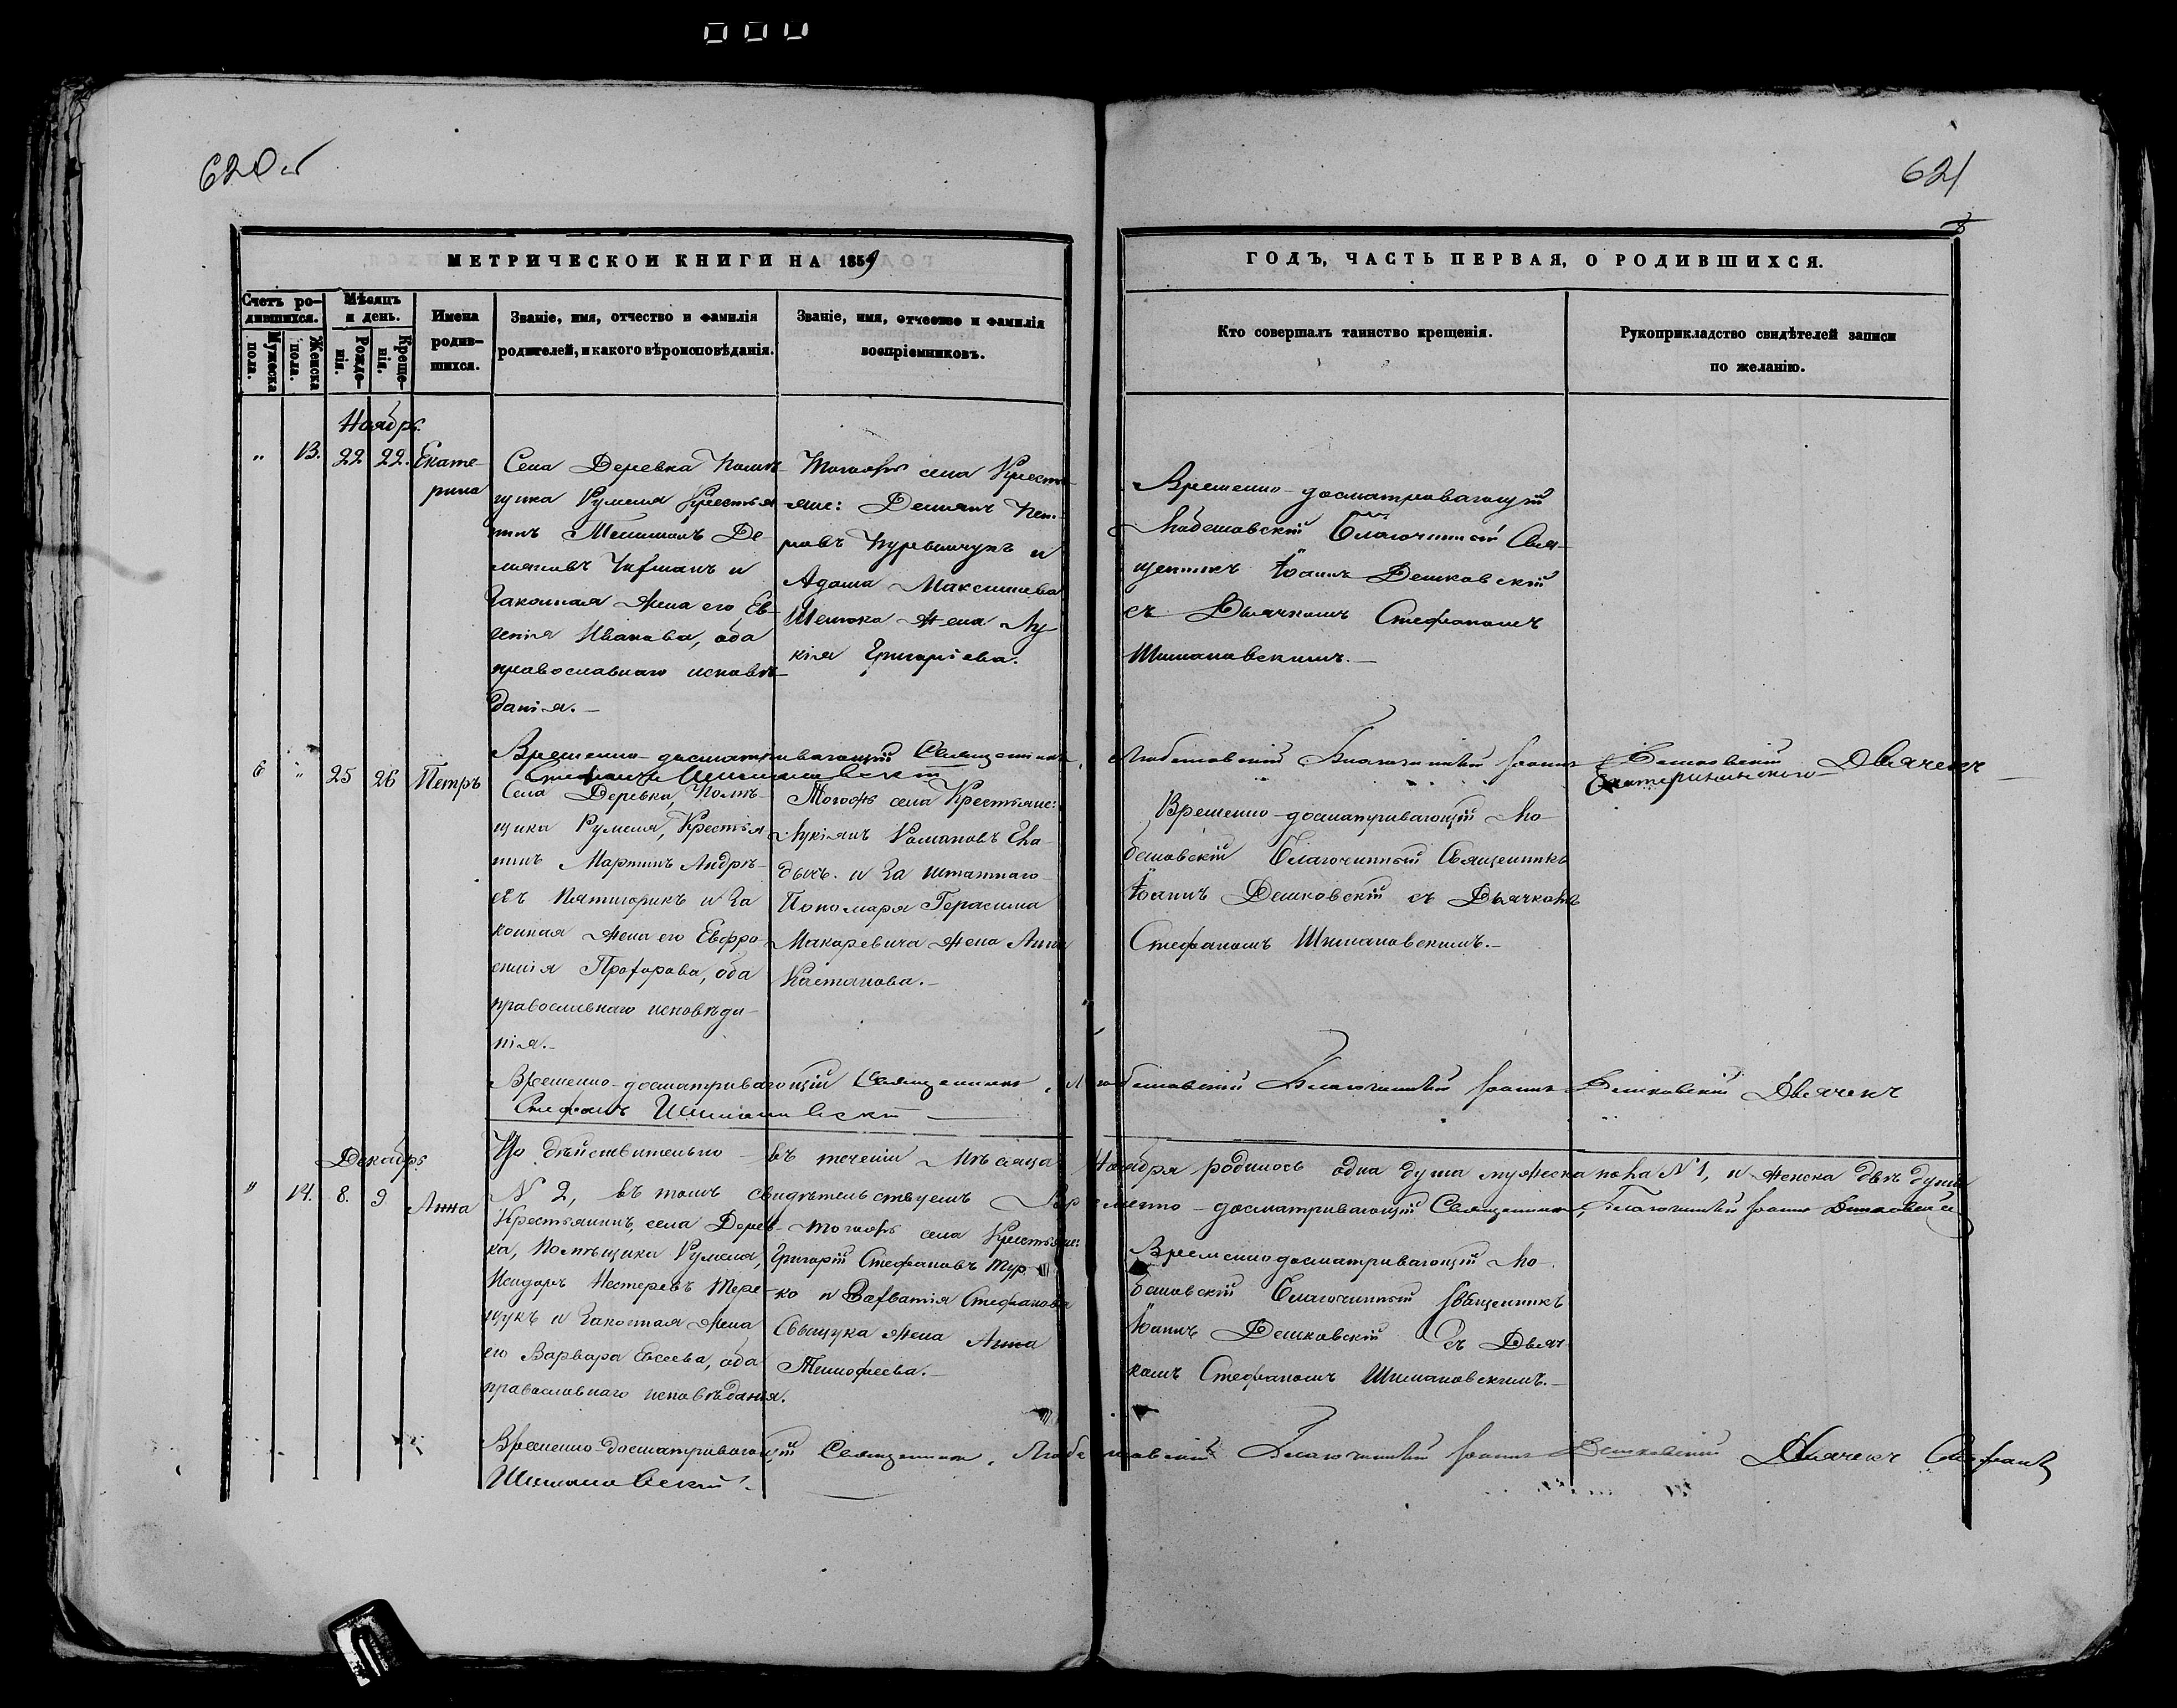 620 об
621
8
МЕТРИЧЕСКОЙ КНИГИ НА 1859
ГОДЪ, ЧАСТЬ ПЕРВАЯ, О РОДИВШИХСЯ.
Счетъ ро-
дившихся.
Мужеска
пола.
Женска
пола.
Мѣсяцъ
и день.
Рожде-
нія.
Креще-
нія.
Имена
родив-
шихся.
Званіе, имя, отчество и фамилія
родителей, и какого вѣроисповѣданія.
Званіе, имя, отчество и фамилія
воспріемниковъ.
Кто совершалъ таинство крещенія.
Рукоприкладство свидѣтелей записи
по желанію.
Ноябрь.
" 13. 22 22. Екате-
рина
Села Деревка Помѣ-
щика Румеля Крестья
нинъ Де-
миановъ и
Законная жена его Ев-
генія Иванова, оба
православнаго исповѣ-
данія.
Тогожъ села Кресть-
яне: Демянъ Пет-
ровъ и
Адама Максимова
жена Лу
кія Григоріева.
Временно-досматривающій
Любешовскій Благочинный Свя-
щенникъ Іоаннъ Дешковскій
съ Дьячкомъ Стефаномъ
Шимановскимъ.
Временно-досматривающій Священникъ, Любешовскій Благочинный Іоаннъ Дешковскій Дьячекъ
Стефанъ Шимановскій
6 " 25 26 Петръ
Села Деревка, Помѣ-
щика Румеля, Крестья
нинъ Мартинъ Андрѣ-
евъ Пятигорикъ и За
конная жена его Евфро-
синія Прохорова, оба
православнаго исповѣда-
нія.
Тогожъ села Крестьяне:
Лукіянъ Романовъ
и За штатнаго
Пономаря Герасима
Макаревича жена Анна
Временно-досматривающій Лю-
бешовскій Благочинный Священникъ
Іоаннъ Дешковскій съ Дьячкомъ
Стефаномъ Шимановскимъ.
Временно-досматривающій Священникъ, Любешовскій Благочинный Іоаннъ Дешковскій Дьячекъ
Стефанъ Шимановскій
Что дѣйствительно въ теченіи Мѣсяца Ноября родилось одна душа мужеска пола N 1, и женска двѣ души
N 2, въ томъ свидѣтельствуемъ Временно-досматривающій Священникъ, Благочинный Іоаннъ Дешковскій
Декабрь
" 14. 8. 9. Анна
Крестьянинъ, села Дерев-
ка, Помѣщика Румеля,
Исидоръ Нестеревъ Тере-
щукъ и Законная жена
его Варвара Евсеева, оба
православнаго исповѣданія.
тогожъ села Крестьяне:
Григорій Стефановъ Тур
ко и Савватія Стефанова
жена Анна
Тимофеева.
Временно досматривающій Лю-
бешовскій Благочинный Священникъ
Іоаннъ Дешковскій съ Дьяч
комъ Стефаномъ Шимановскимъ.
Временно-досматривающій Священникъ, Любешовскій Благочинный Іоаннъ Дешковскій Дьячекъ Стефанъ
Шимановскій.